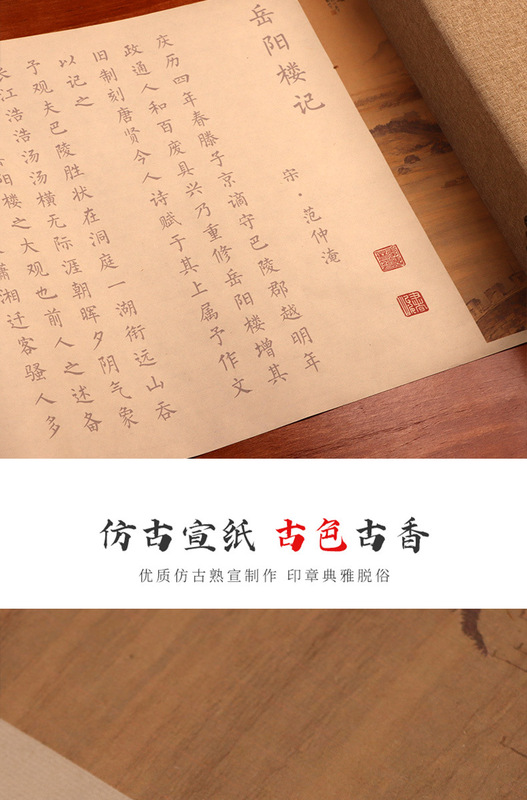 岳阳楼记
宋·范仲淹
庆历四年春滕子京谪守巴陵郡越明年
政通人和百废具兴乃重修岳阳楼增其
旧制刻唐贤今人诗赋于其上属予作文
以记之
予观夫巴陵胜状在洞庭一湖衔远山吞
长江浩浩汤汤横无际涯朝晖夕阴气象
阳楼之大观也前人之述备
潇湘迁客骚人多
仿古宣纸 古色古香
优质仿古熟宣制作 印章典雅脱俗